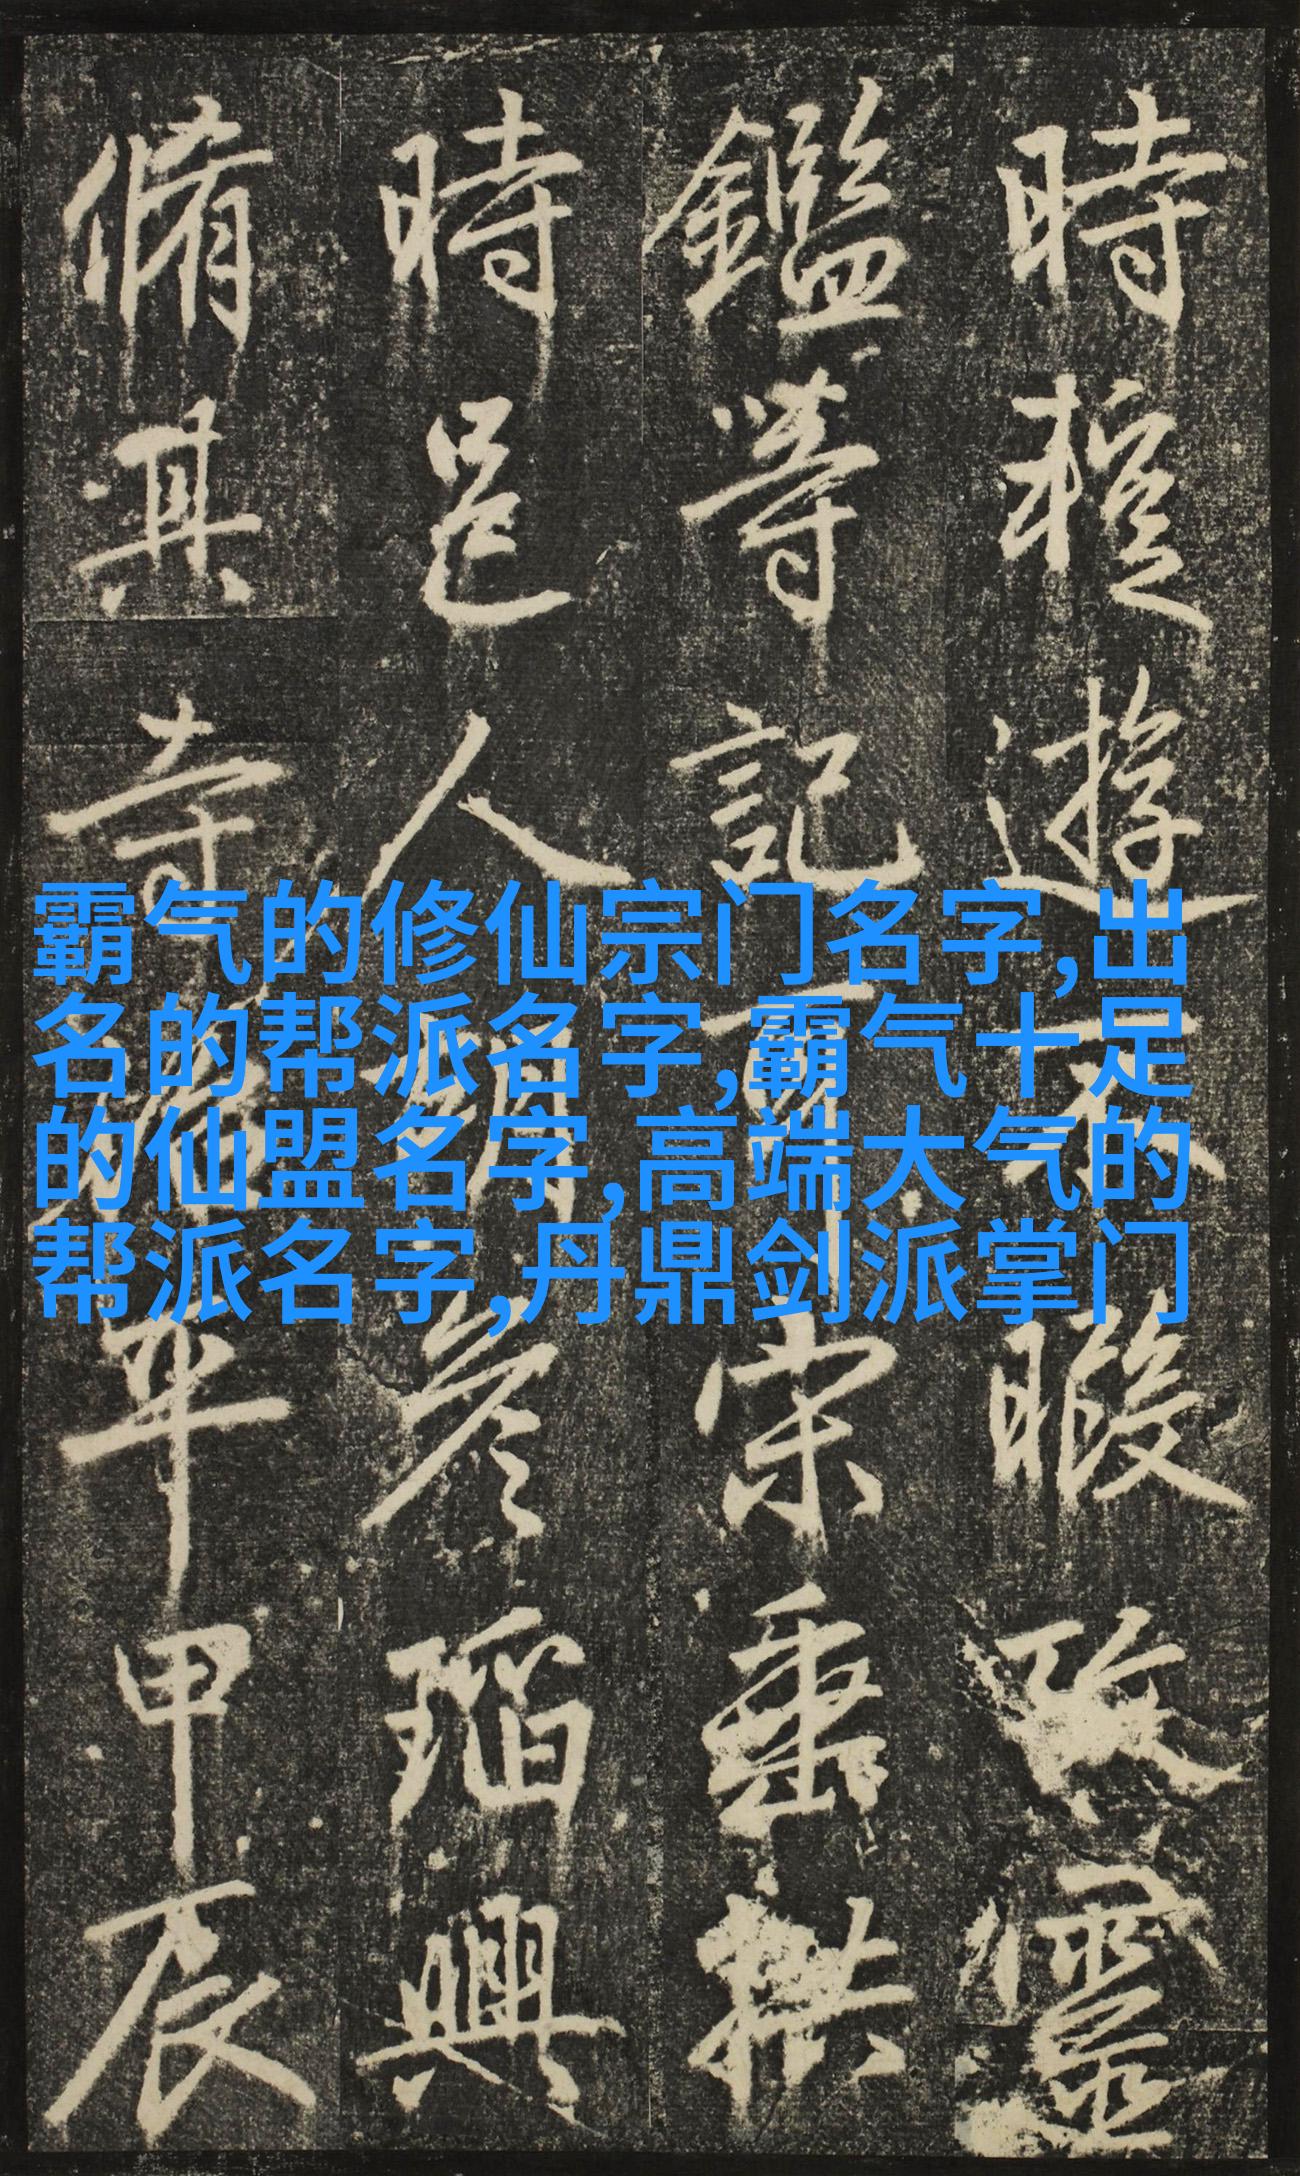 霸气的修仙宗门名字,出
名的帮派名字,霸气十足
的仙盟名字,高端大气的
帮派名字,丹鼎剑派掌门
時遊不暇
鑑等記宋垂拱
時邑人彦瑫興
脩其寺年甲辰